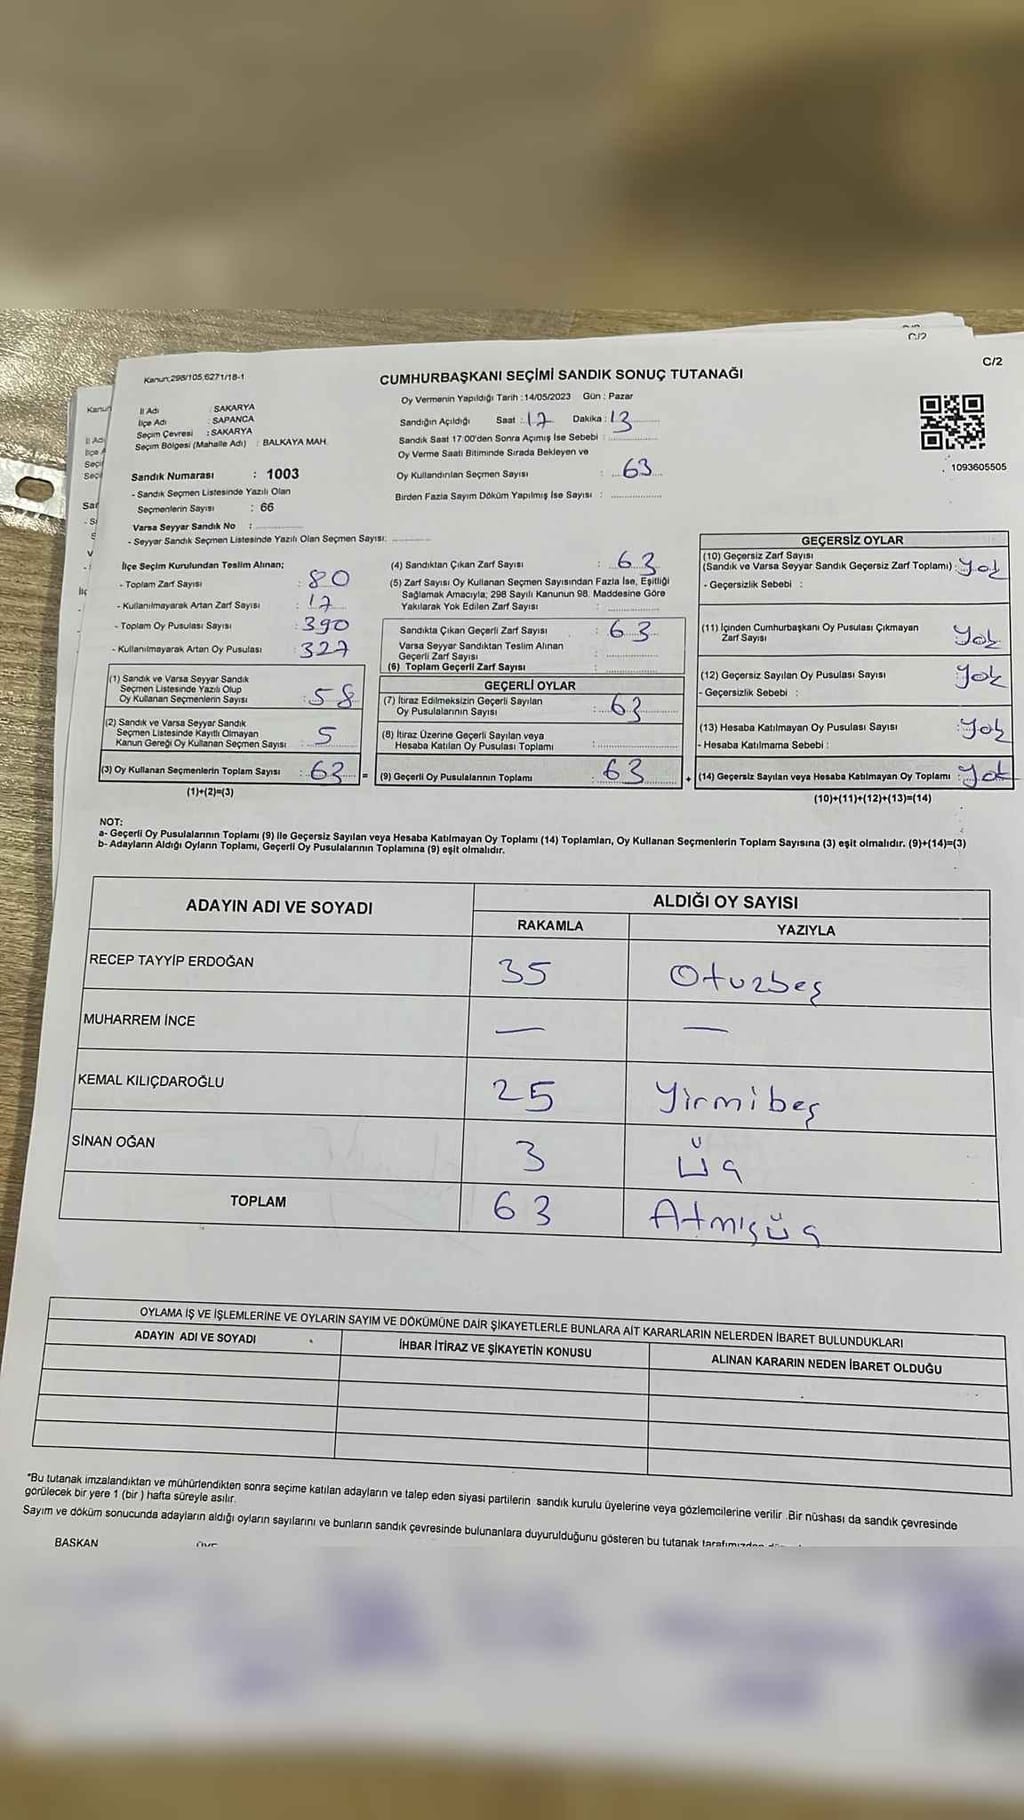 C/2
C/2
Kanun;298/105,6271/18-1
CUMHURBAŞKANI SEÇİMİ SANDIK SONUÇ TUTANAĞI
Oy Vermenin Yapıldığı Tarih :14/05/2023 Gün : Pazar
İl Adı : SAKARYA
İlçe Adı : SAPANCA
Seçim Çevresi : SAKARYA
Seçim Bölgesi (Mahalle Adı) : BALKAYA MAH.
Sandık Numarası : 1003
- Sandık Seçmen Listesinde Yazılı Olan
Seçmenlerin Sayısı : 66
Varsa Seyyar Sandık No :
- Seyyar Sandık Seçmen Listesinde Yazılı Olan Seçmen Sayısı:
Sandığın Açıldığı Saat : 17 Dakika : 13
Sandık Saat 17:00'den Sonra Açımış İse Sebebi :
Oy Verme Saati Bitiminde Sırada Bekleyen ve
Oy Kullandırılan Seçmen Sayısı : 63
Birden Fazla Sayım Döküm Yapılmış İse Sayısı :
1093605505
İlçe Seçim Kurulundan Teslim Alınan;
- Toplam Zarf Sayısı : 80
- Kullanılmayarak Artan Zarf Sayısı : 17
- Toplam Oy Pusulası Sayısı : 390
- Kullanılmayarak Artan Oy Pusulası : 327
(1) Sandık ve Varsa Seyyar Sandık
Seçmen Listesinde Yazılı Olup
Oy Kullanan Seçmenlerin Sayısı : 58
(2) Sandık ve Varsa Seyyar Sandık
Seçmen Listesinde Kayıtlı Olmayan
Kanun Gereği Oy Kullanan Seçmen Sayısı : 5
(3) Oy Kullanan Seçmenlerin Toplam Sayısı : 63 =
(1)+(2)=(3)
(4) Sandıktan Çıkan Zarf Sayısı : 63
(5) Zarf Sayısı Oy Kullanan Seçmen Sayısından Fazla İse, Eşitliği
Sağlamak Amacıyla; 298 Sayılı Kanunun 98. Maddesine Göre
Yakılarak Yok Edilen Zarf Sayısı :
Sandıkta Çıkan Geçerli Zarf Sayısı : 63
Varsa Seyyar Sandıktan Teslim Alınan
Geçerli Zarf Sayısı :
(6) Toplam Geçerli Zarf Sayısı
GEÇERLİ OYLAR
(7) İtiraz Edilmeksizin Geçerli Sayılan
Oy Pusulalarının Sayısı : 63
(8) İtiraz Üzerine Geçerli Sayılan veya
Hesaba Katılan Oy Pusulası Toplamı :
(9) Geçerli Oy Pusulalarının Toplamı : 63 +
GEÇERSİZ OYLAR
(10) Geçersiz Zarf Sayısı
(Sandık ve Varsa Seyyar Sandık Geçersiz Zarf Toplamı) : Yok
- Geçersizlik Sebebi :
(11) İçinden Cumhurbaşkanı Oy Pusulası Çıkmayan
Zarf Sayısı : Yok
(12) Geçersiz Sayılan Oy Pusulası Sayısı : Yok
- Geçersizlik Sebebi :
(13) Hesaba Katılmayan Oy Pusulası Sayısı : Yok
- Hesaba Katılmama Sebebi :
(14) Geçersiz Sayılan veya Hesaba Katılmayan Oy Toplamı : Yok
(10)+(11)+(12)+(13)=(14)
NOT:
a- Geçerli Oy Pusulalarının Toplamı (9) ile Geçersiz Sayılan veya Hesaba Katılmayan Oy Toplamı (14) Toplamları, Oy Kullanan Seçmenlerin Toplam Sayısına (3) eşit olmalıdır. (9)+(14)=(3)
b- Adayların Aldığı Oyların Toplamı, Geçerli Oy Pusulalarının Toplamına (9) eşit olmalıdır.
ADAYIN ADI VE SOYADI
ALDIĞI OY SAYISI
RAKAMLA YAZIYLA
RECEP TAYYİP ERDOĞAN 35 Otuzbeş
MUHARREM İNCE — —
KEMAL KILIÇDAROĞLU 25 Yirmibeş
SİNAN OĞAN 3 Üç
TOPLAM 63 Atmışüç
OYLAMA İŞ VE İŞLEMLERİNE VE OYLARIN SAYIM VE DÖKÜMÜNE DAİR ŞİKAYETLERLE BUNLARA AİT KARARLARIN NELERDEN İBARET BULUNDUKLARI
ADAYIN ADI VE SOYADI İHBAR İTİRAZ VE ŞİKAYETİN KONUSU ALINAN KARARIN NEDEN İBARET OLDUĞU
*Bu tutanak imzalandıktan ve mühürlendikten sonra seçime katılan adayların ve talep eden siyasi partilerin sandık kurulu üyelerine veya gözlemcilerine verilir. Bir nüshası da sandık çevresinde
görülecek bir yere 1 (bir ) hafta süreyle asılır.
Sayım ve döküm sonucunda adayların aldığı oyların sayılarını ve bunların sandık çevresinde bulunanlara duyurulduğunu gösteren bu tutanak tarafımızdan
BAŞKAN ÜYE